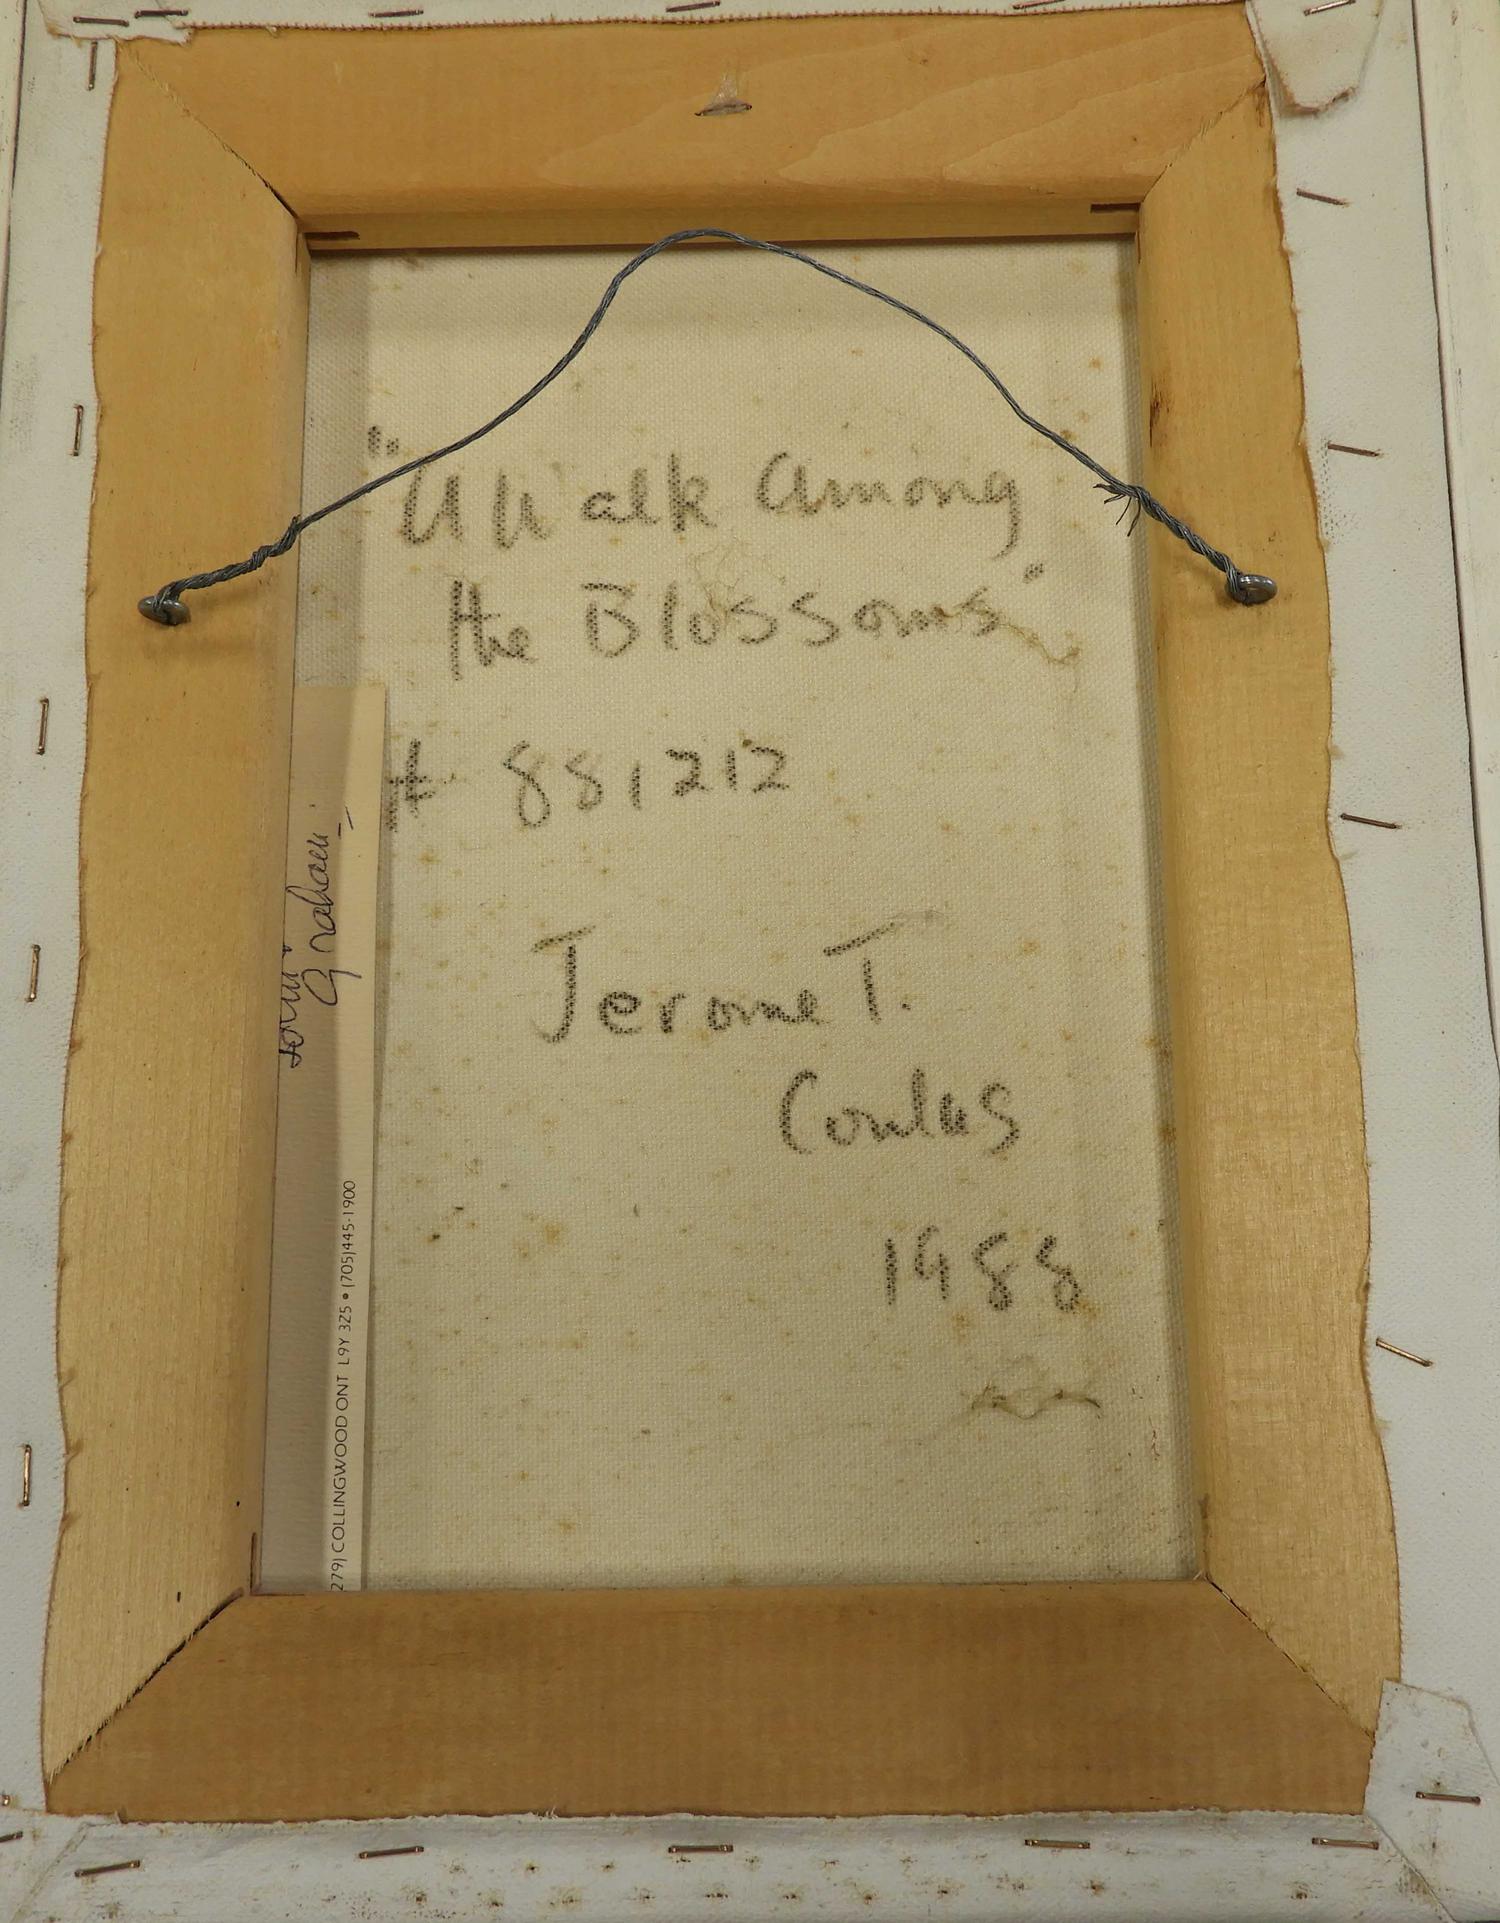 "A Walk Among
the Blossoms"
# 881212
Jerome T.
Coulas
1988
Graham
279) COLLINGWOOD ONT L9Y 3Z5 • (705)445-1900